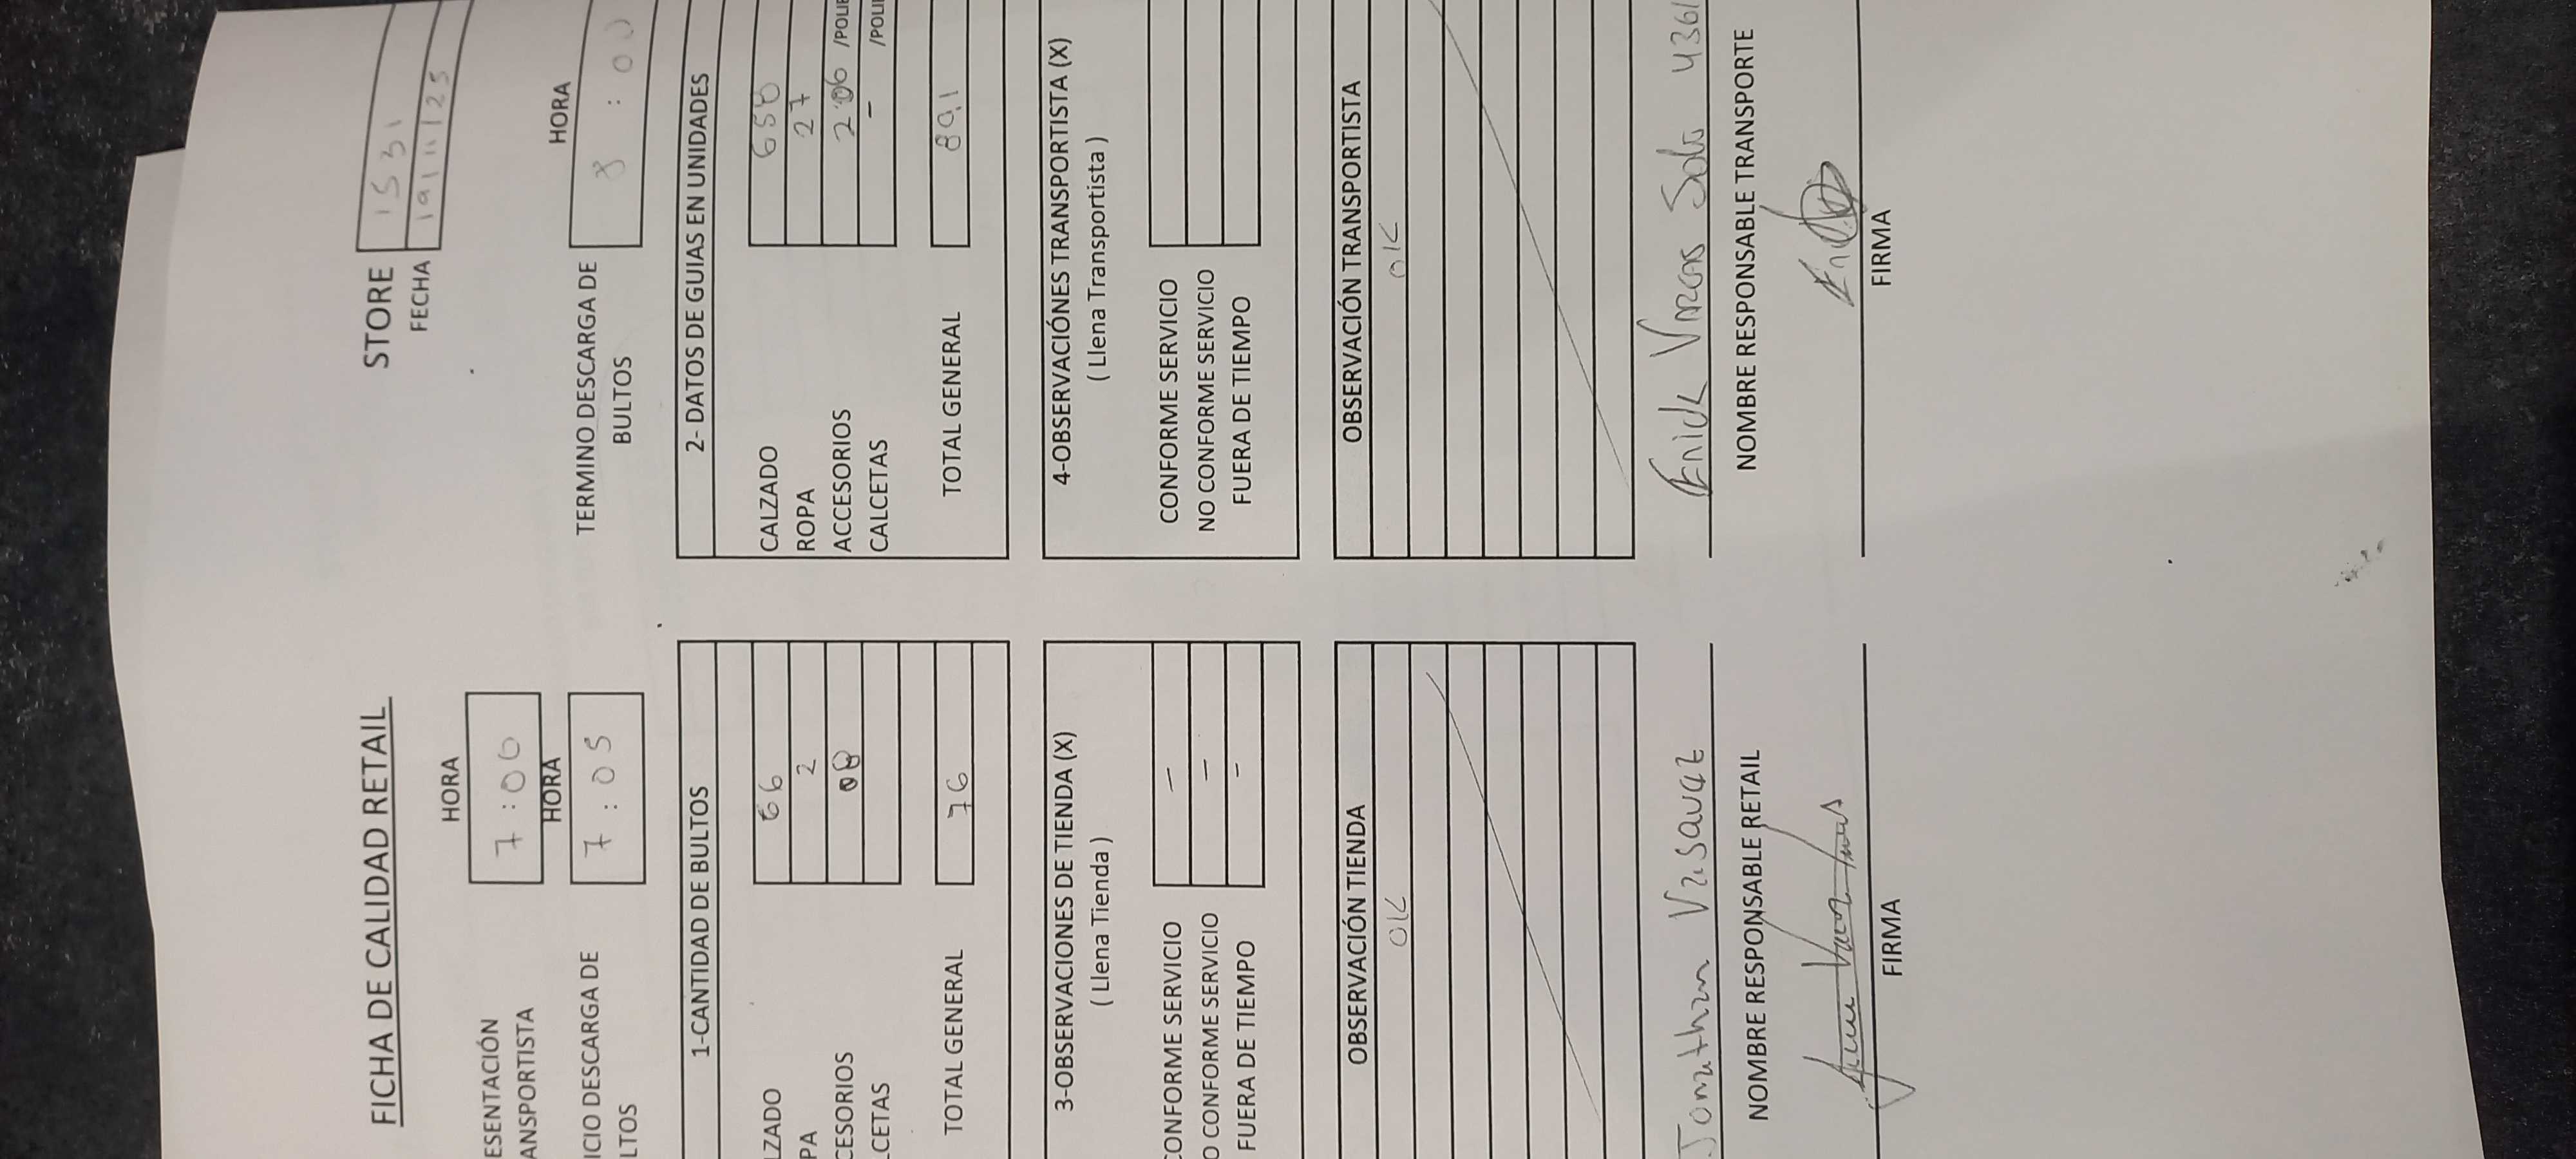 FICHA DE CALIDAD RETAIL
STORE 1531
FECHA 19/11/25
HORA
ESENTACIÓN
ANSPORTISTA
7:00
HORA
ICIO DESCARGA DE
LTOS
7:05
HORA
TERMINO DESCARGA DE
BULTOS
8:00
1-CANTIDAD DE BULTOS
LZADO 66
PA 2
CESORIOS 08
LCETAS
TOTAL GENERAL 76
2- DATOS DE GUIAS EN UNIDADES
CALZADO 658
ROPA 27
ACCESORIOS 206 /POLIE
CALCETAS - /POLI
TOTAL GENERAL 891
3-OBSERVACIONES DE TIENDA (X)
( Llena Tienda )
CONFORME SERVICIO -
O CONFORME SERVICIO -
FUERA DE TIEMPO -
4-OBSERVACIÓNES TRANSPORTISTA (X)
( Llena Transportista )
CONFORME SERVICIO
NO CONFORME SERVICIO
FUERA DE TIEMPO
OBSERVACIÓN TIENDA
OK
OBSERVACIÓN TRANSPORTISTA
OK
Jonathan
NOMBRE RESPONSABLE RETAIL
FIRMA
Erick Vargas Soto 4361
NOMBRE RESPONSABLE TRANSPORTE
FIRMA